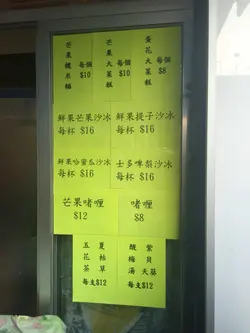 芒果糯米糍 每個 $10
芒果大菜糕 每個 $10
蛋花大菜糕 每個 $8
鮮果芒果沙冰
每杯 $16
鮮果提子沙冰
每杯 $16
鮮果哈蜜瓜沙冰
每杯 $16
士多啤梨沙冰
每杯 $16
芒果啫喱
$12
啫喱
$8
五花茶
夏枯草
每支$12
酸梅湯
紫貝天葵
每支$12